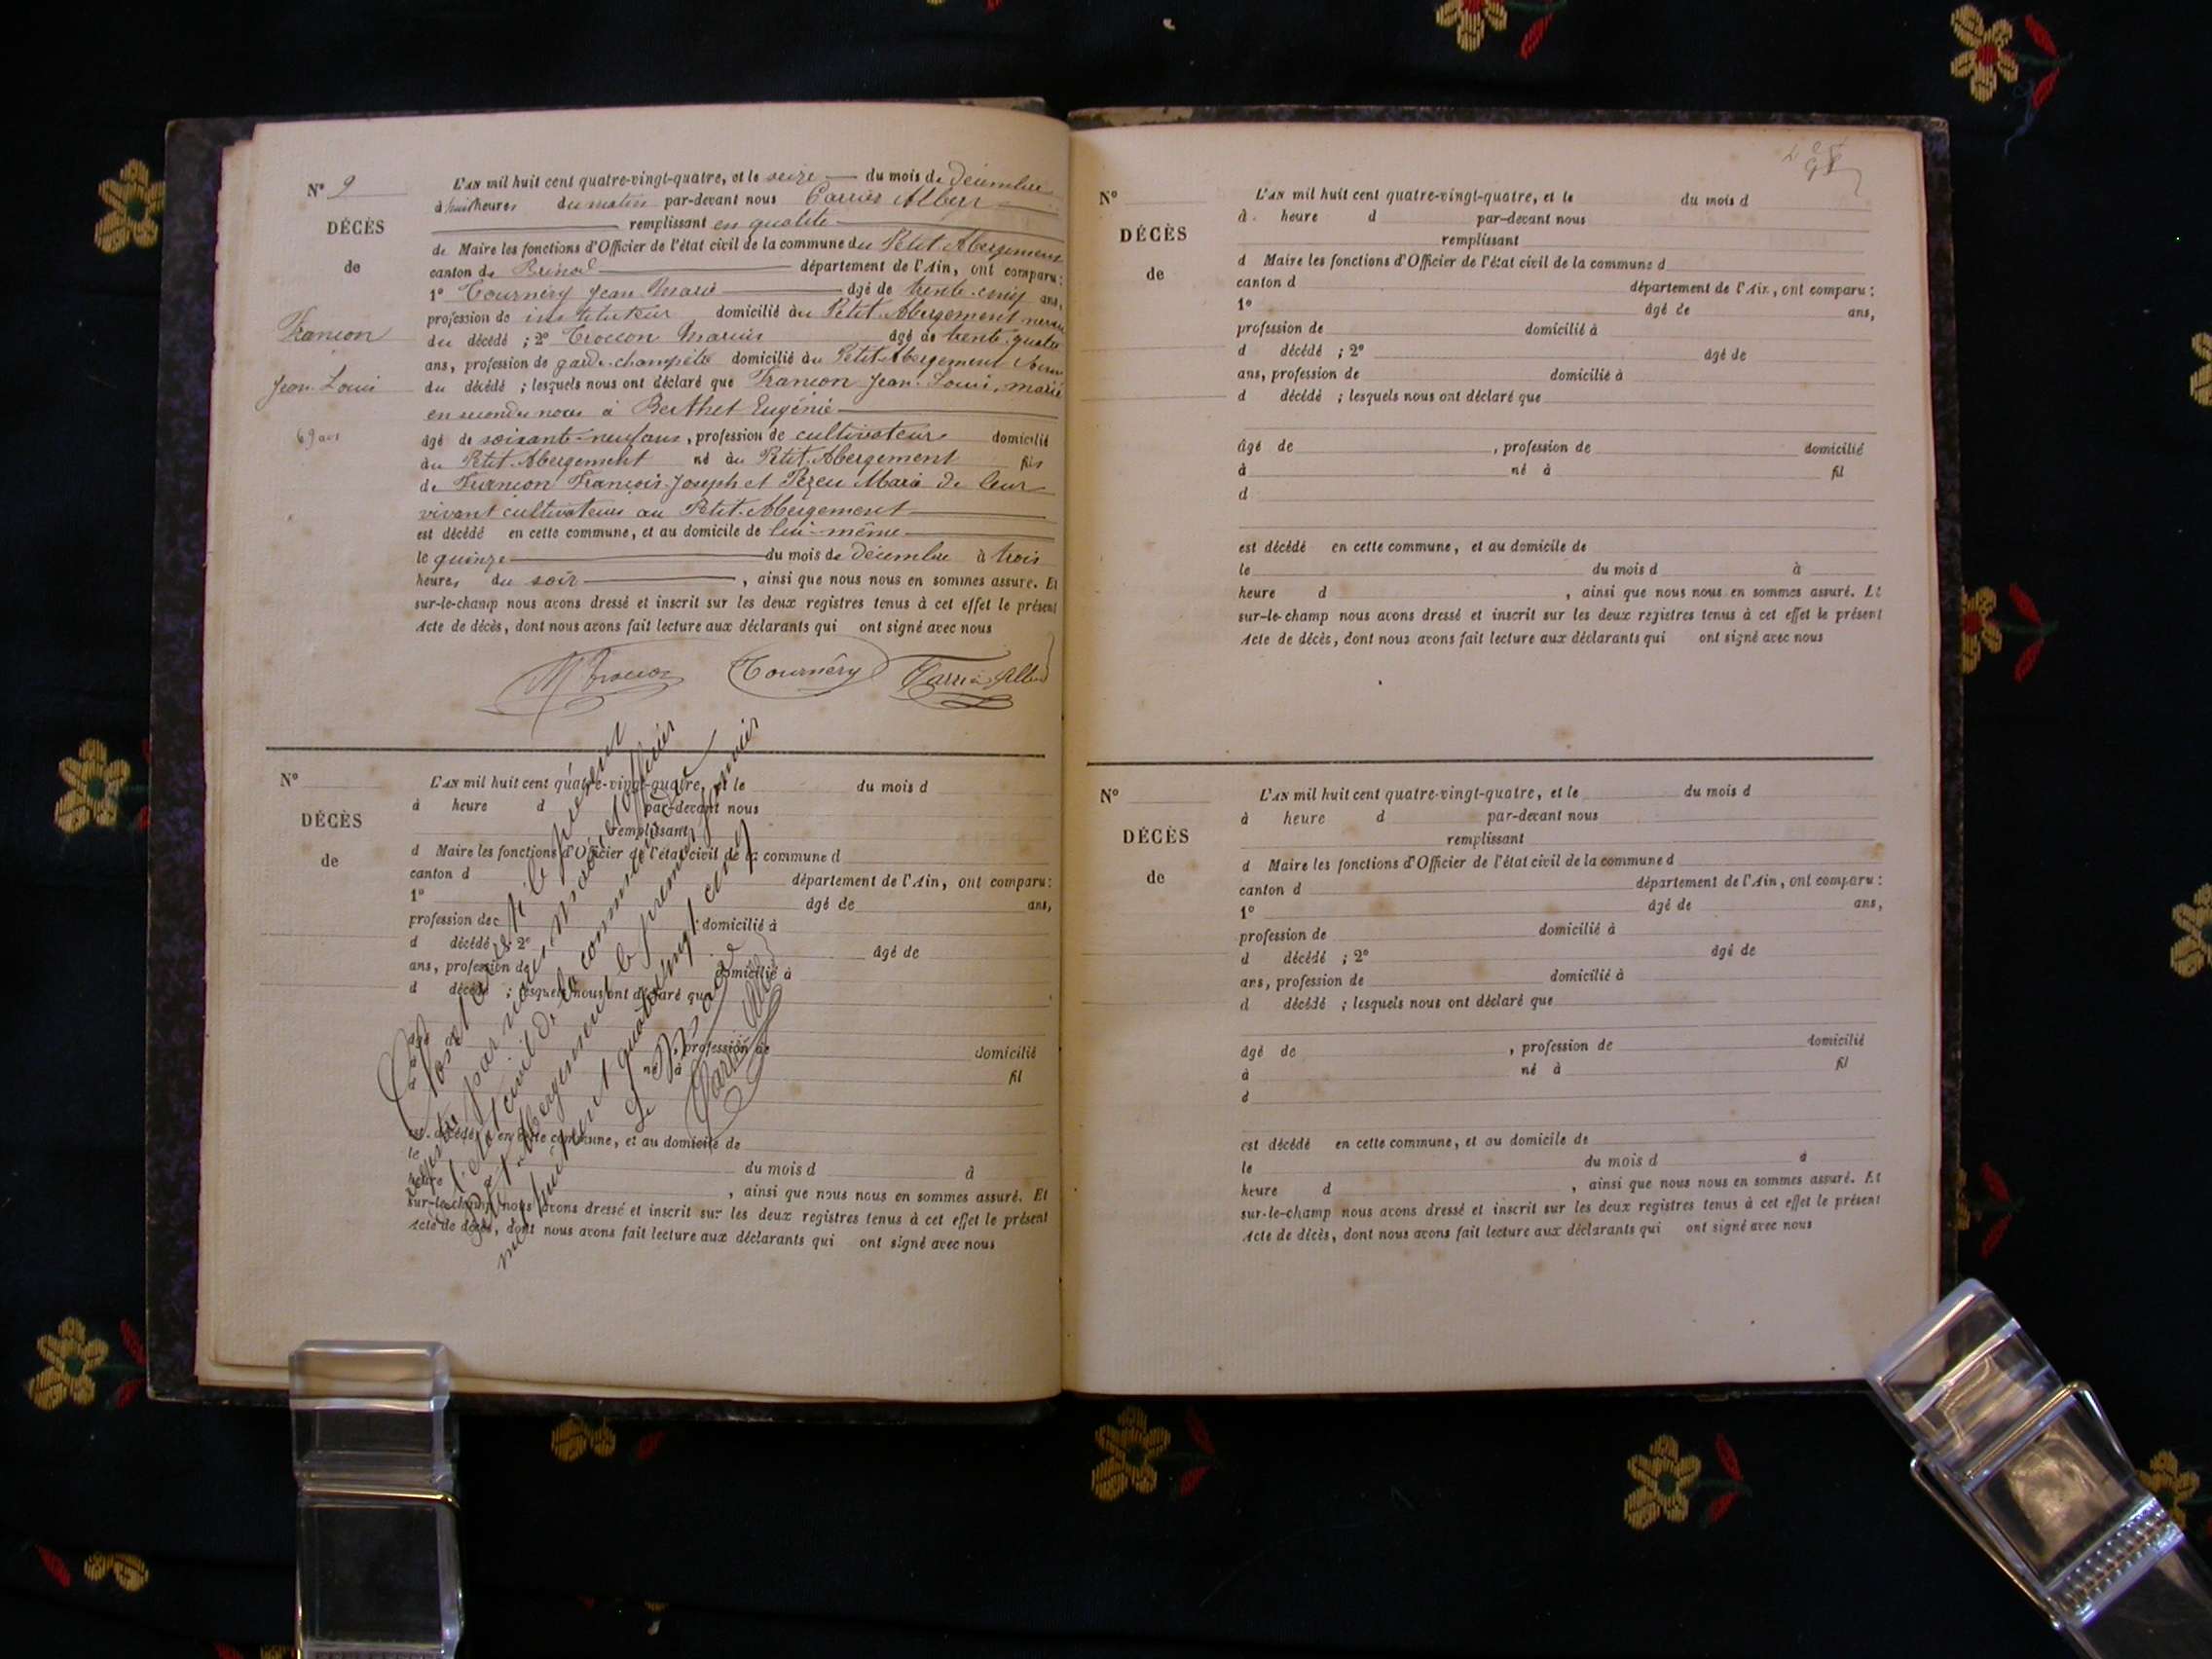 N° 9
DÉCÈS
de
Francon
Jean-Louis
69 ans
L'AN mil huit cent quatre-vingt-quatre, et le seize du mois de décembre
à huit heures du matin par-devant nous Carrier Albert
remplissant en qualité
de Maire les fonctions d'Officier de l'état civil de la commune du Petit-Abergement
canton de Brénod département de l'Ain, ont comparu :
1° Tournéry Jean Marie âgé de trente-cinq ans,
profession de instituteur domicilié au Petit-Abergement
du décédé ; 2° Trocon Marius âgé de trente-quatre
ans, profession de garde-champêtre domicilié au Petit-Abergement
du décédé ; lesquels nous ont déclaré que Francon Jean-Louis, marié
en secondes noces à Berthet Eugénie
âgé de soixante-neuf ans, profession de cultivateur domicilié
au Petit-Abergement né au Petit-Abergement fils
de Francon François-Joseph et Pezeu Marie de leur
vivant cultivateurs au Petit-Abergement
est décédé en cette commune, et au domicile de lui-même
le quinze du mois de décembre à trois
heures du soir, ainsi que nous nous en sommes assuré. Et
sur-le-champ nous avons dressé et inscrit sur les deux registres tenus à cet effet le présent
Acte de décès, dont nous avons fait lecture aux déclarants qui ont signé avec nous
M Trocon Tournéry Carrier Albert
N°
DÉCÈS
de
L'AN mil huit cent quatre-vingt-quatre, et le du mois d
à heure d par-devant nous
remplissant
d Maire les fonctions d'Officier de l'état civil de la commune d
canton d département de l'Ain, ont comparu :
1° âgé de ans,
profession de domicilié à
d décédé ; 2° âgé de
ans, profession de domicilié à
d décédé ; lesquels nous ont déclaré que
âgé de , profession de domicilié
à né à fil
d
est décédé en cette commune, et au domicile de
le du mois d à
heure d , ainsi que nous nous en sommes assuré. Et
sur-le-champ nous avons dressé et inscrit sur les deux registres tenus à cet effet le présent
Acte de décès, dont nous avons fait lecture aux déclarants qui ont signé avec nous
Clos et arrêté le présent
registre par nous, Maire et officier
de l'état civil de la commune du
Petit-Abergement le premier janvier
mil huit cent quatre vingt cinq
Le Maire
Carrier Albert
N°
DÉCÈS
de
L'AN mil huit cent quatre-vingt-quatre, et le du mois d
à heure d par-devant nous
remplissant
d Maire les fonctions d'Officier de l'état civil de la commune d
canton d département de l'Ain, ont comparu :
1° âgé de ans,
profession de domicilié à
d décédé ; 2° âgé de
ans, profession de domicilié à
d décédé ; lesquels nous ont déclaré que
âgé de , profession de domicilié
à né à fil
d
est décédé en cette commune, et au domicile de
le du mois d à
heure d , ainsi que nous nous en sommes assuré. Et
sur-le-champ nous avons dressé et inscrit sur les deux registres tenus à cet effet le présent
Acte de décès, dont nous avons fait lecture aux déclarants qui ont signé avec nous
N°
DÉCÈS
de
L'AN mil huit cent quatre-vingt-quatre, et le du mois d
à heure d par-devant nous
remplissant
d Maire les fonctions d'Officier de l'état civil de la commune d
canton d département de l'Ain, ont comparu :
1° âgé de ans,
profession de domicilié à
d décédé ; 2° âgé de
ans, profession de domicilié à
d décédé ; lesquels nous ont déclaré que
âgé de , profession de domicilié
à né à fil
d
est décédé en cette commune, et au domicile de
le du mois d à
heure d , ainsi que nous nous en sommes assuré. Et
sur-le-champ nous avons dressé et inscrit sur les deux registres tenus à cet effet le présent
Acte de décès, dont nous avons fait lecture aux déclarants qui ont signé avec nous